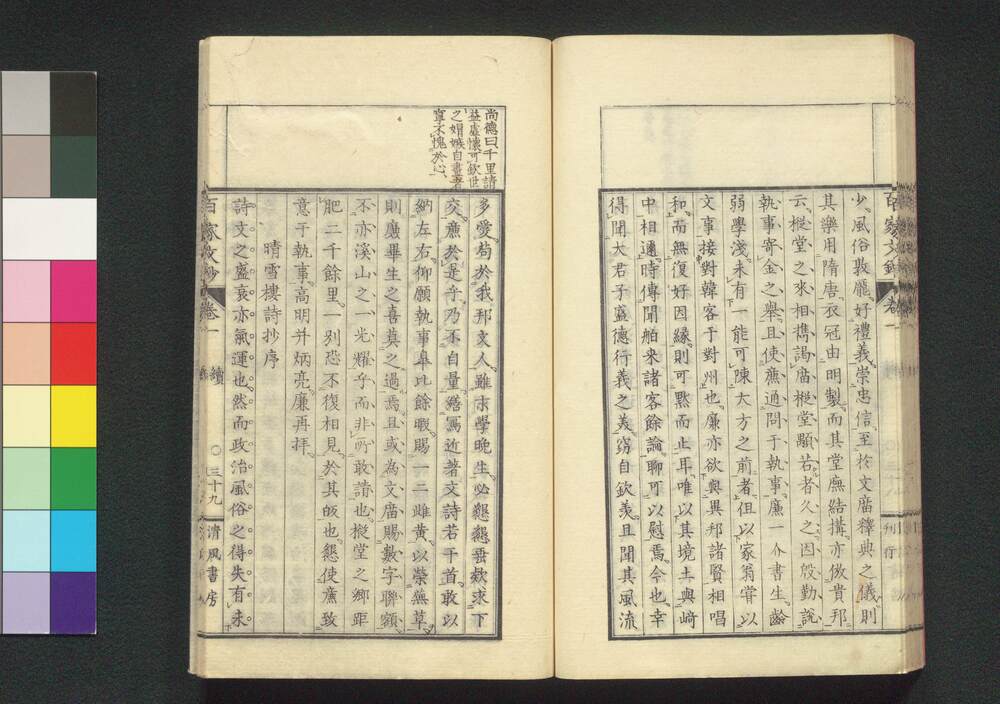 少。風俗敦龐。好禮義。崇忠信。至於文廟釋典之儀。則
其樂用隋唐。衣冠由明製。而其堂廡結搆。亦倣貴邦
云。樅堂之來。相携謁廟。樅堂顒若者久之。因殷勤說
執事寄金之舉。且使廉通問于執事。廉一介書生。齡
弱學淺。未有一能可陳大方之前者。但以家翁嘗以
文事接對韓客于對州也。廉亦欲與異邦諸賢相唱
和。而無復好因緣。則可默而止耳。唯以其境土與崎
中相邇。時傳聞舶來諸客餘論。聊可以慰焉。今也幸
得聞大君子盛德行義之美。竊自欽羨。且聞其風流
百家文鈔 卷一
刊行
尚德曰千里請
益虛懷可欽世
之娼嫉自畫者
寧不愧於心
多愛。苟於我邦文人。雖末學晚生。必懇懇垂欵。求下
交。廉於是乎。乃不自量。繕寫近著文詩若干首。敢以
納左右。仰願執事皐比餘暇。賜一二雌黃。以榮蕪草。
則廉畢生之喜。莫之過焉。且或為文廟賜數字聯額。
不亦溪山之一光耀乎。而非所敢請也。樅堂之鄉距
肥二千餘里。一別恐不復相見。於其皈也。懇使廉致
意于執事。高明并炳亮。廉再拜。
晴雪樓詩抄序
詩文之盛衰亦氣運也。然而政治風俗之得失有未
百家文鈔 卷一
續
〇三十九
清風書房